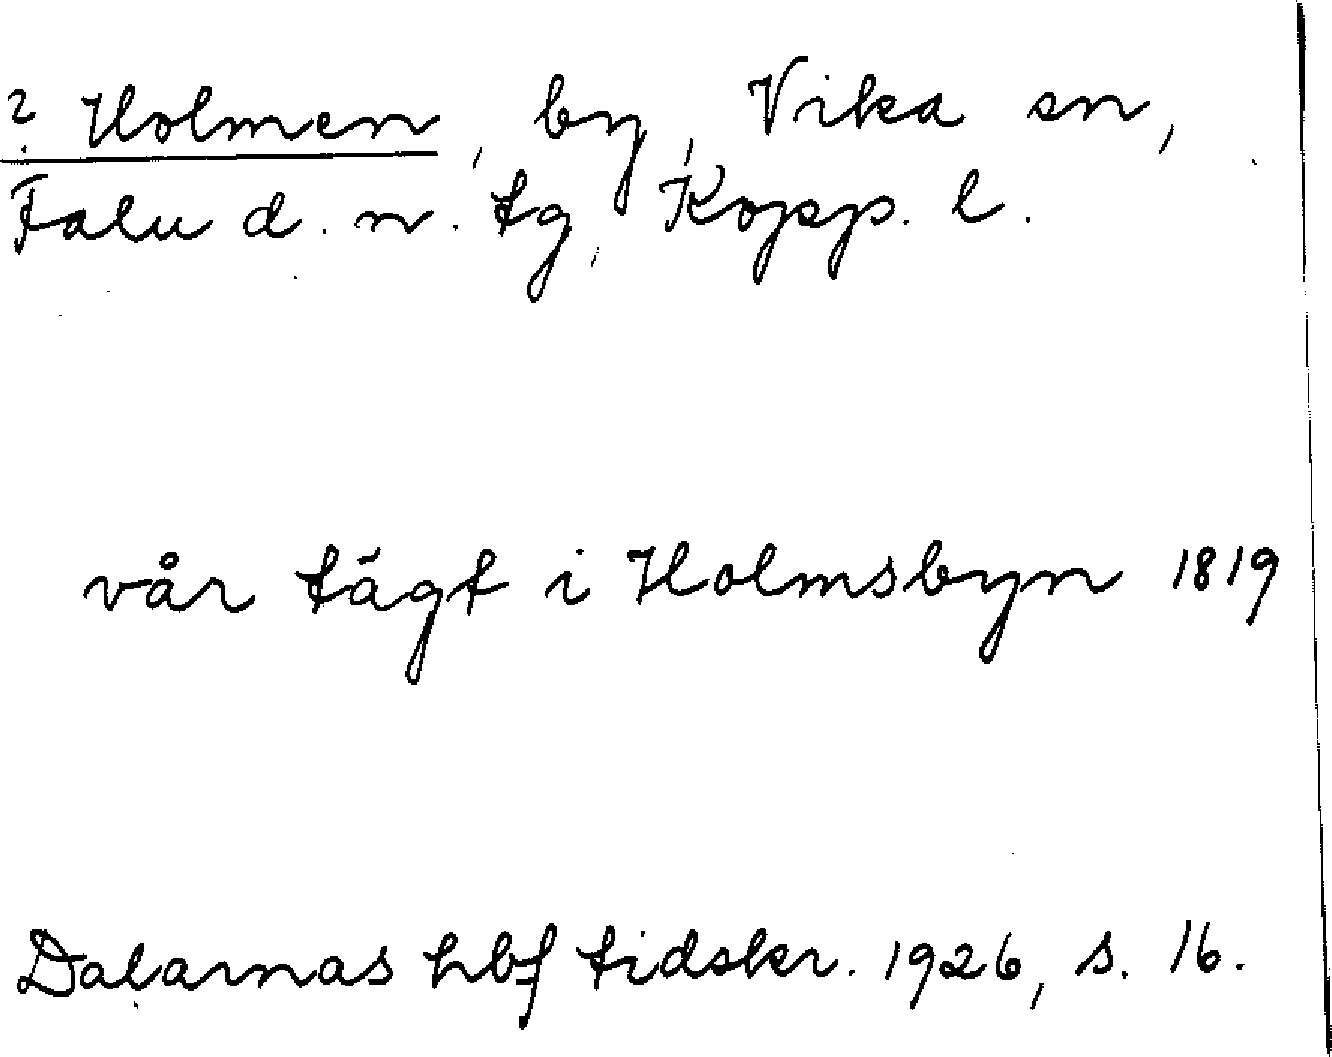 ? Holmen, by, Vika sn,
Falu d. n. tg, Kopp. l.
vår tägt i Holmsbyn 1819
Dalarnas hbf tidskr. 1926, s. 16.